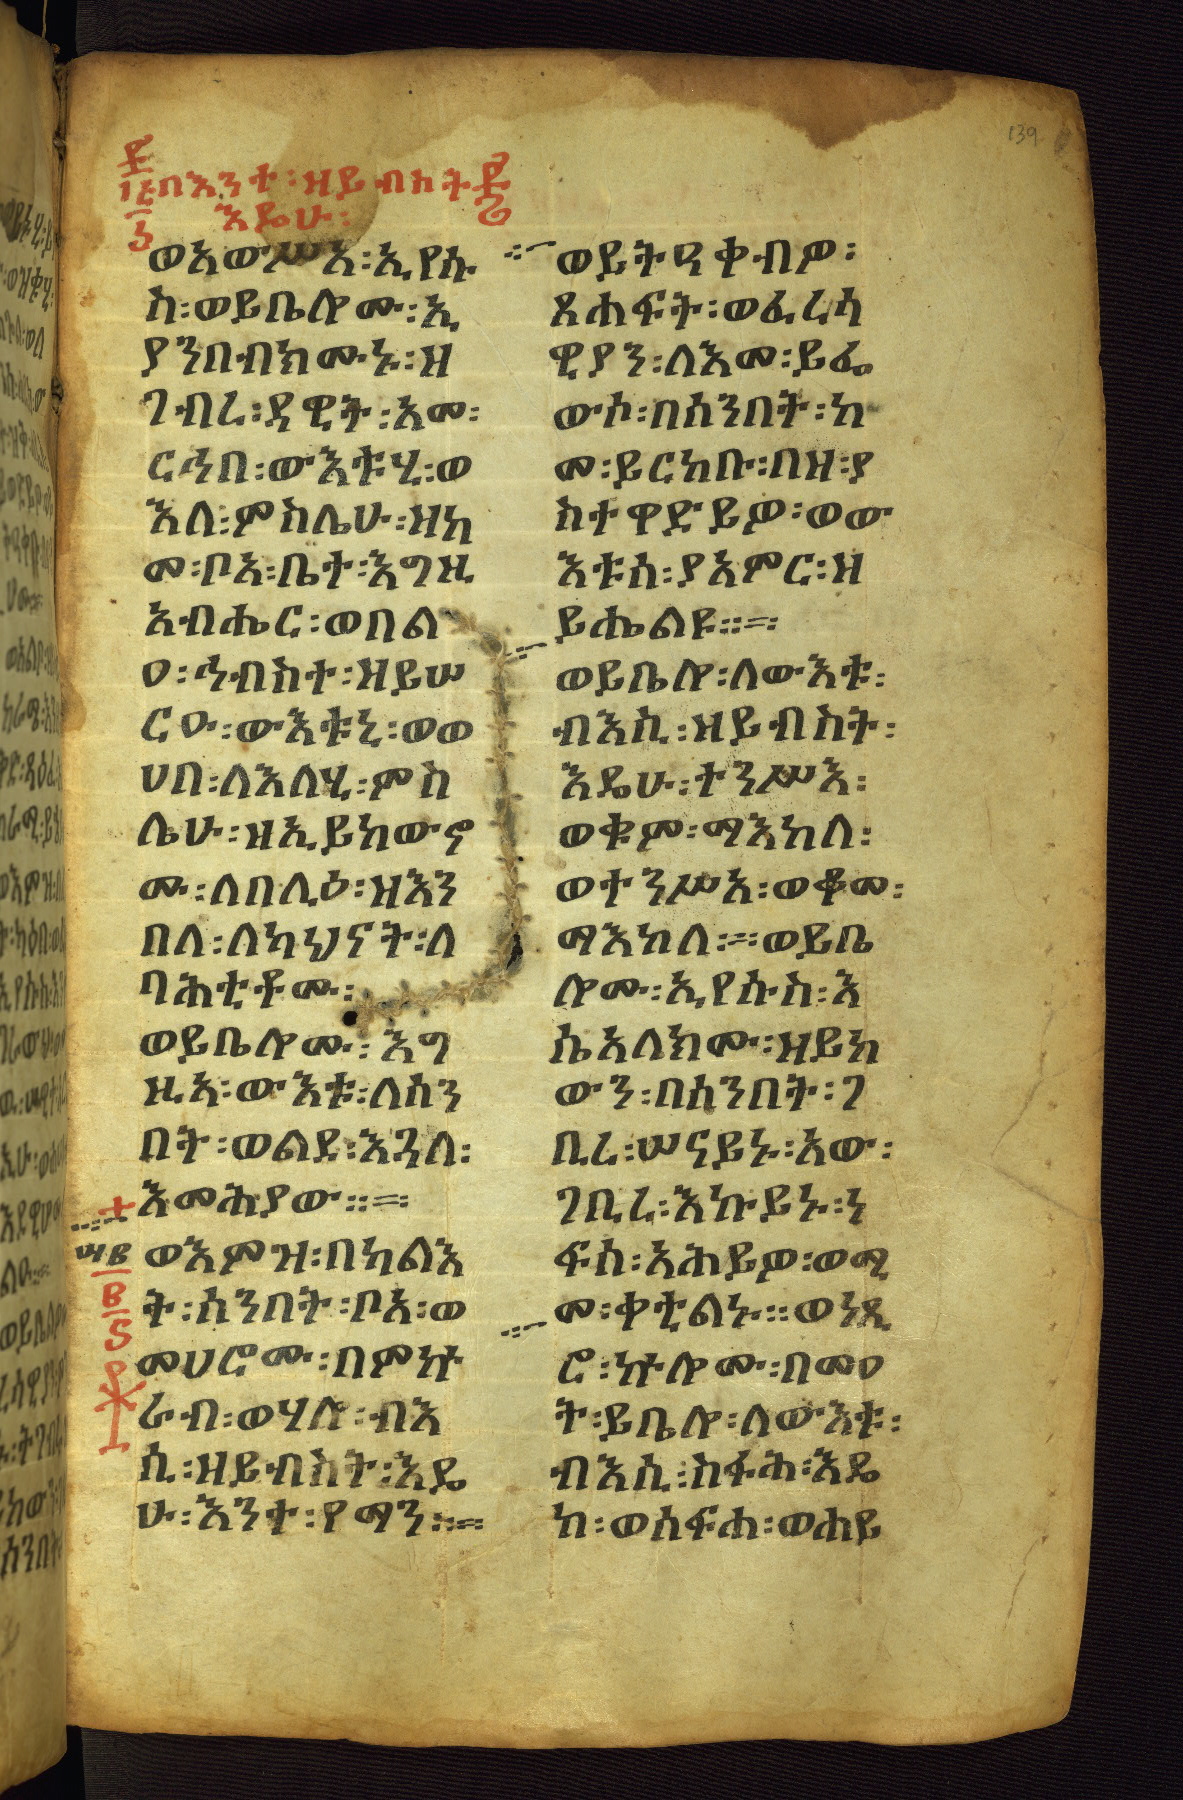 139
በእንተ፡ዘይብስት
እዴሁ፡
ወአውሥአ፡ኢየሱ
ስ፡ወይቤሎሙ፡ኢ
ያንበብክሙኑ፡ዘ
ገብረ፡ዳዊት፡አመ፡
ርኅበ፡ውእቱሂ፡ወ
እለ፡ምስሌሁ፡ዘከ
መ፡ቦአ፡ቤተ፡እግዚ
አብሔር፡ወበል
ዐ፡ኅብስተ፡ዘይሠ
ርዑ፡ውእቱኒ፡ወወ
ሀበ፡ለእለሂ፡ምስ
ሌሁ፡ዘኢይከውኖ
ሙ፡ለበሊዕ፡ዘእን
በለ፡ለካህናት፡ለ
ባሕቲቶሙ፡
ወይቤሎሙ፡እግ
ዚአ፡ውእቱ፡ለሰን
በት፡ወልደ፡እጓለ፡
እመሕያው።=
ወእምዝ፡በካልእ
ት፡ሰንበት፡ቦአ፡ወ
መሀሮሙ፡በምኵ
ራብ፡ወሃሎ፡ብእ
ሲ፡ዘይብስት፡እዴ
ሁ፡እንተ፡የማን።=
ወይትዓቀብዎ፡
ጸሐፍት፡ወፈሪሳ
ዊያን፡ለእመ፡ይፌ
ውሶ፡በሰንበት፡ከ
መ፡ይርከቡ፡በዘ፡ያ
ስተዋድይዎ፡ወው
እቱሰ፡ያአምር፡ዘ
ይሔልዩ።=
ወይቤሎ፡ለውእቱ፡
ብእሲ፡ዘይብስት፡
እዴሁ፡ተንሥእ፡
ወቁም፡ማእከለ፡
ወተንሥአ፡ወቆመ፡
ማእከለ፡=ወይቤ
ሎሙ፡ኢየሱስ፡እ
ሴአለክሙ፡ዘይከ
ውን፡በሰንበት፡ገ
ቢረ፡ሠናይኑ፡አው፡
ገቢረ፡እኩይኑ፡ነ
ፍስ፡አሕይዎ፡ወሚ
መ፡ቀቲልኑ።ወነጺ
ሮ፡ኵሎሙ፡በመዐ
ት፡ይቤሎ፡ለውእቱ፡
ብእሲ፡ስፋሕ፡እዴ
ከ፡ወሰፍሐ፡ወሐይ